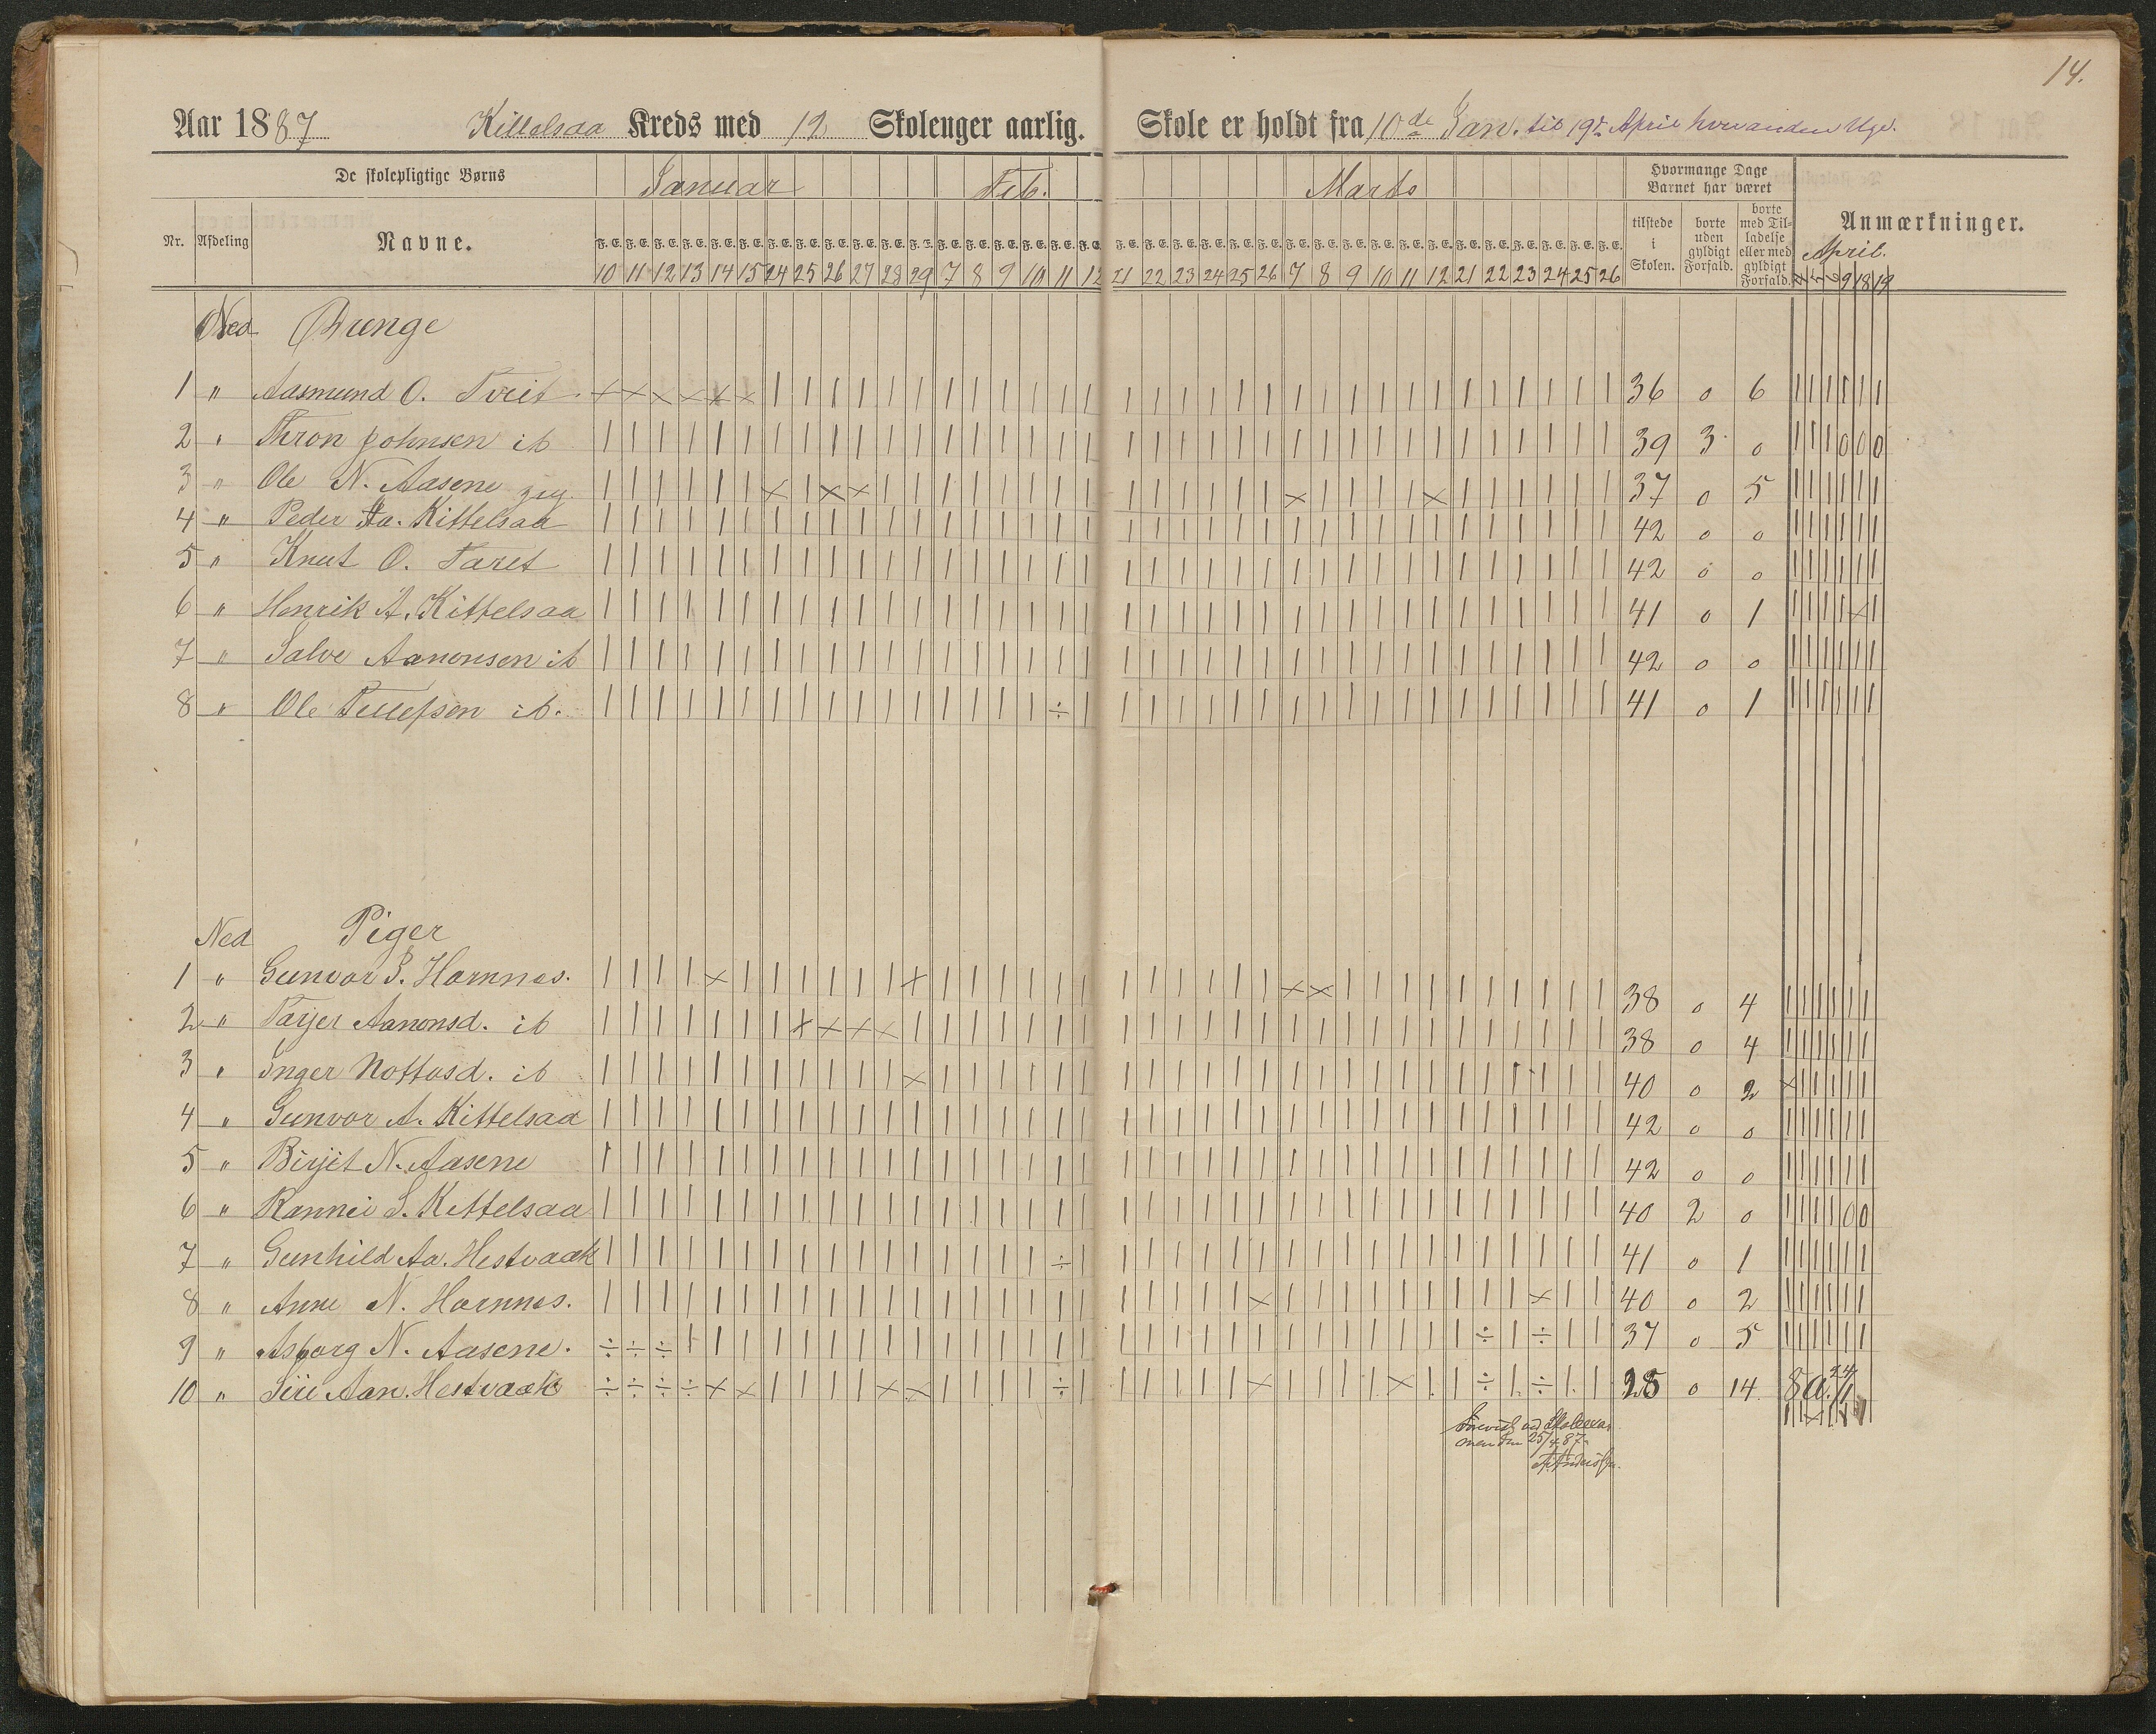 14.
Aar 1887 Kittelsaa Kreds med 12 Skoleuger aarlig. Skole er holdt fra 10de Jan. til 19de April hver anden Uge.
De skolepligtige Børns Januar Feb. Marts Hvormange Dage Barnet har været
Nr. Afdeling Navne. tilstede i Skolen. borte uden gyldigt Forfald. borte med Tilladelse eller med gyldigt Forfald. Anmærkninger.
April.
F. E. F. E. F. E. F. E. F. E. F. E. F. E. F. E. F. E. F. E. F. E. F. E. F. E. F. E. F. E. F. E. F. E. F. E. F. E. F. E. F. E. F. E. F. E. F. E. F. E. F. E. F. E. F. E. F. E. F. E. F. E. F. E. F. E. F. E. F. E. F. E.
10 11 12 13 14 15 24 25 26 27 28 29 7 8 9 10 11 12 21 22 23 24 25 26 7 8 9 10 11 12 21 22 23 24 25 26 9 18 19
Ned Drenge
1 " Aasmund O. Tveit × × × × × × | | | | | | | | | | | | | | | | | | | | | | | | | | | | | | 36 0 6 | | | | | |
2 " Thron Johnsen ib | | | | | | | | | | | | | | | | | | | | | | | | | | | | | | | | | | | | 39 3 0 | | | 0 0 0
3 " Ole N. Aasene | | | | | | × | × × | | | | | | | | | | | | | | × | | | | × | | | | | | 37 0 5 | | | | | |
4 " Peder Aa. Kittelsaa | | | | | | | | | | | | | | | | | | | | | | | | | | | | | | | | | | | | 42 0 0 | | | | | |
5 " Knut O. Taret | | | | | | | | | | | | | | | | | | | | | | | | | | | | | | | | | | | | 42 0 0 | | | | | |
6 " Henrik A. Kittelsaa | | | | | | | | | | | | | | | | | | | | | | | | | | | | | | | | | | | | 41 0 1 | | | | × |
7 " Salve Aanonsen ib | | | | | | | | | | | | | | | | | | | | | | | | | | | | | | | | | | | | 42 0 0 | | | | | |
8 " Ole Tellefsen ib. | | | | | | | | | | | | | | | | ÷ | | | | | | | | | | | | | | | | | | | 41 0 1 | | | | | |
Ned Piger
1 " Gunvor S. Hornnes. | | | | × | | | | | | × | | | | | | | | | | | | × × | | | | | | | | | | 38 0 4 | | | | | |
2 " Tarjer Aanonsd. ib | | | | | | | × × × × | | | | | | | | | | | | | | | | | | | | | | | | | 38 0 4 | | | | | |
3 " Inger Nottosd. ib | | | | | | | | | | | × | | | | | | | | | | | | | | | | | | | | | | | | 40 0 2 × | | | | |
4 " Gunvor A. Kittelsaa | | | | | | | | | | | | | | | | | | | | | | | | | | | | | | | | | | | | 42 0 0 | | | | | |
5 " Birjit N. Aasene | | | | | | | | | | | | | | | | | | | | | | | | | | | | | | | | | | | | 42 0 0 | | | | | |
6 " Rannei S. Kittelsaa | | | | | | | | | | | | | | | | | | | | | | | | | | | | | | | | | | | | 40 2 0 | | | | 0 0
7 " Gunhild Aa. Hestvaak | | | | | | | | | | | | | | | | ÷ | | | | | | | | | | | | | | | | | | | 41 0 1 | | | | | |
8 " Anne N. Hornnes. | | | | | | | | | | | | | | | | | | | | | | | × | | | | | | | | | × | | | 40 0 2 | | | | | |
9 " Asborg N. Aasene. ÷ ÷ ÷ | | | | | | | | | | | | | | | | | | | | | | | | | | | | ÷ | ÷ | | 37 0 5 | | | | | |
10 " Siri Aan. Hestvaak ÷ ÷ ÷ ÷ × × | | | | × × | | | | ÷ | | | | | | × | | | | × | | ÷ | ÷ | | 28 0 14
ved
25/4 87.